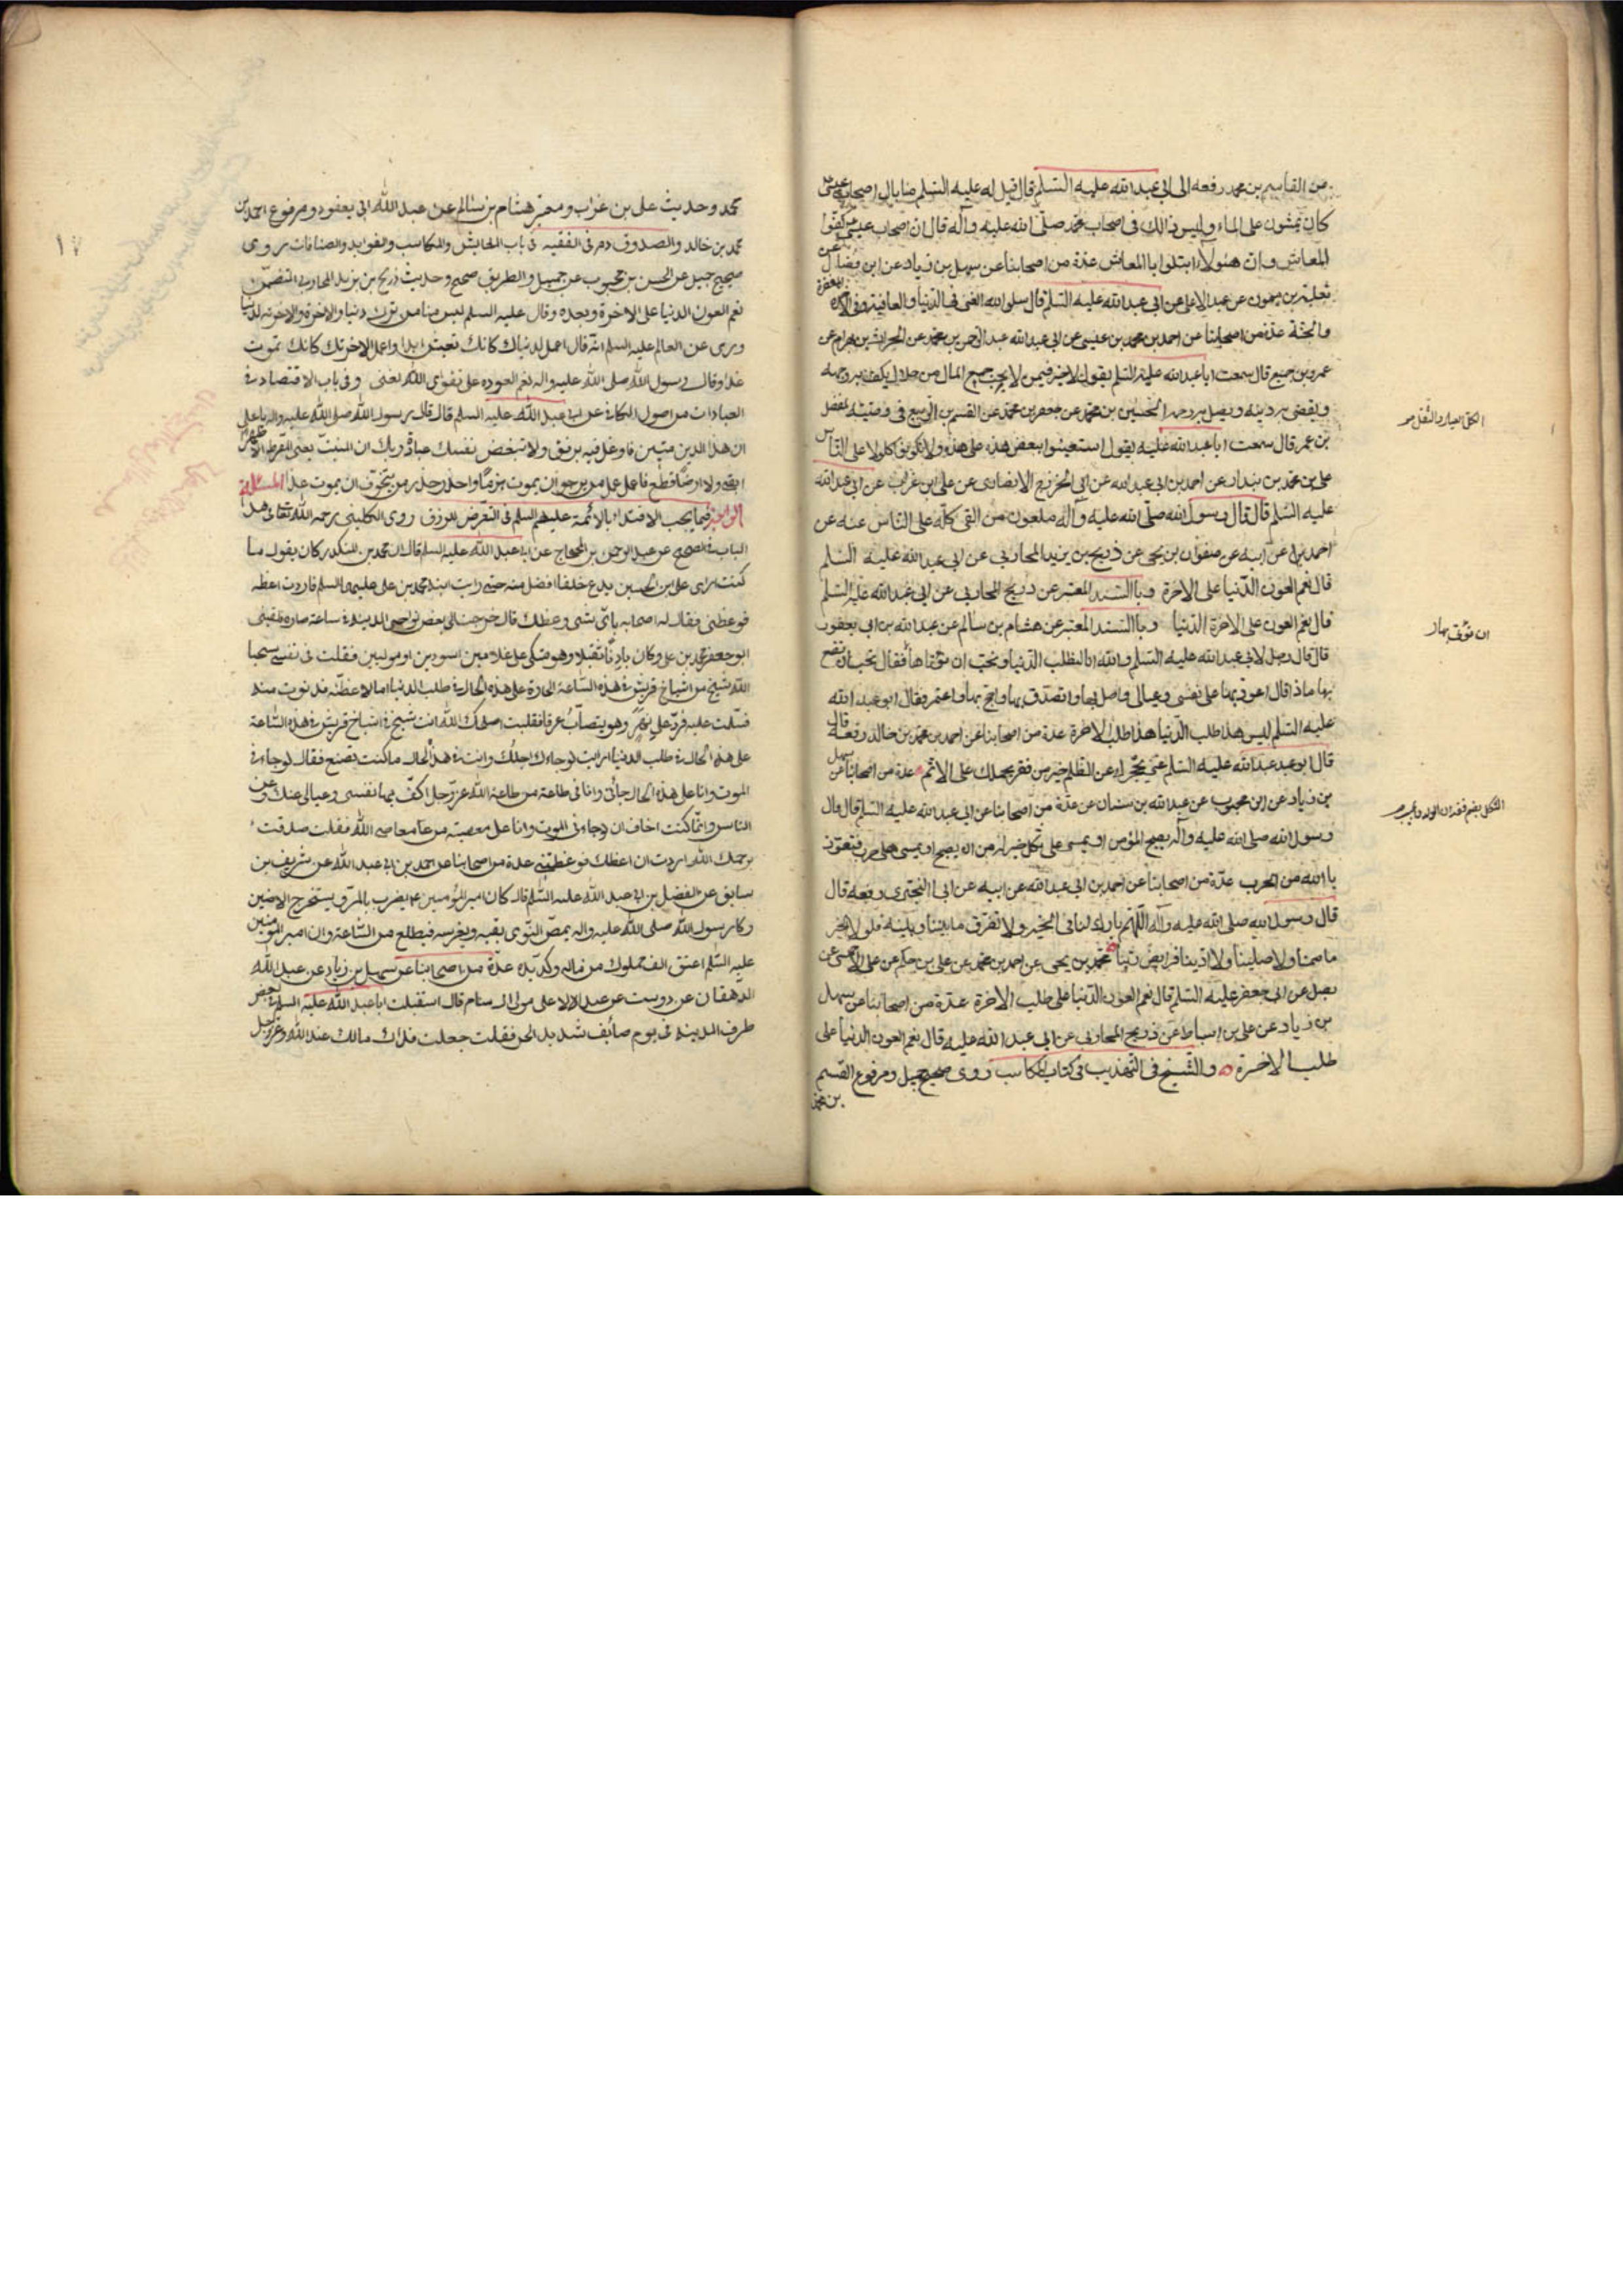 من القاسم بن محمد رفعه الى ابى عبد الله عليه السّلم قال قيل له عليه السّلم ما بال اصحاب عيسى
كان يمشون على الماء وليس ذالك فى اصحاب محمد صلّى الله عليه وآله قال ان اصحاب عيسى كفوا
المعاش وان هٰؤلآء ابتلوا باالمعاش عدة من اصحابنا عن سهل بن زياد عن ابن فضال عن
ثعلبة بن ميمون عن عبد الاعلى عن ابى عبد الله عليه السّلم قال سلوا الله الغنى فى الدّنيا والعافية وفى الاخرة المغفرة
والجنّة عدة من اصحابنا عن احمد بن محمد بن عيسى عن ابى عبد الله عبد الرحمن بن محمد عن الحارث بن بهرام عن
عمرو بن جميع قال سمعت ابا عبد الله عليه السّلم يقول لا خير فيمن لا يحب جميع المال من حلال يكف به وجهه
ويقضى به دينه ويصل به رحمه الحسين بن محمد عن جعفر بن محمد عن القسم بن الربيع فى وصيّته لمفضل
بن عمر قال سمعت ابا عبد الله عليه يقول استعينوا ببعض هذه على هذه ولا تكونوا كلولا على النّاس
على بن محمد بن بندار عن احمد بن ابى عبد الله عن ابى الخزرج الانصارى عن على ابن غراب عن ابى عبد الله
عليه السّلم قال قال رسول الله صلّى الله عليه وآله ملعون من القى كلّه على النّاس عنه عن
احمد عن ابيه عن صفوان بن يحيى عن ذريح بن يزيد المحاربى عن ابى عبد الله عليه السّلم
قال نعم العون الدّنيا على الاخرة وباالسّند المعتبر عن ذريح المحاربى عن ابى عبد الله عليه السّلم
قال نعم العون على الاخرة الدّنيا وباالسّند المعتبر عن هشام بن سالم عن عبد الله بن ابى يعفور
قال قال رجل لابى عبد الله عليه السّلم والله انا لنطلب الدّنيا ونحبّ ان نؤتاها فقال تحب ان تصنع
بها ماذا قال اعود بها على نفسى وعيالى واصل بها واتصدّق بها واحج بها واعتمر فقال ابو عبد الله
عليه السّلم ليس هذا طلب الدّنيا هذا طلب الاخرة عدة من اصحابنا عن احمد بن محمد بن خالد رفعه قال
قال ابو عبد الله عليه السّلم غنى يحجزك عن الظلم خير من فقر يحملك على الاثم عدة من اصحابنا عن سهل
بن زياد عن ابن محبوب عن عبد الله بن سنان عن عدة من اصحابنا عن ابى عبد الله عليه السّلم قال قال
رسول الله صلى الله عليه وآله يصبح المؤمن او يمسى على ثكل خير له من ان يصبح او يمسى على حرب فنعوذ
باالله من الحرب عدّة من اصحابنا عن احمد بن ابى عبد الله عن ابيه عن ابى البخترى رفعه قال
قال رسول الله صلى الله عليه وآله اللّهم بارك لنا فى الخبز ولا تفرق ما بيننا وبينه فلولا الخبز
ما صمنا ولا صلينا ولا ادّينا فرايض ربّنا محمد بن يحيى عن احمد بن محمد عن على بن حكم عن على الاحمسى عن
رجل عن ابى جعفر عليه السّلم قال نعم العون الدّنيا على طلب الاخرة عدّة من اصحابنا عن سهل
بن زياد عن على بن اسباط عن ذريح المحاربى عن ابى عبد الله عليه قال نعم العون الدنيا على
طلب الاخرة والشّيخ فى التّهذيب فى كتاب المكاسب روى صحيح جميل ومرفوع القسم
بن محمد
الكلّ العيال والثّقل ص
ان نؤتى بها
الثكل بضم فقدان الولد
محمد وحديث على بن غراب ومعتبر هشام بن سالم عن عبد الله ابى يعفور ومرفوع احمد بن
محمد بن خالد والصدوق ره فى الفقيه فى باب المعايش والمكاسب والفوايد والصناعات روى
صحيح جميل عن الحسن بن محبوب عن جميل والطريق صحيح وحديث ذريح بن يزيد المحاربى المتضمن
نعم العون الدنيا على الاخرة وبعده وقال عليه السلم ليس منا من ترك دنياه لاخرته والاخرته لدنياه
وروى عن العالم عليه السلم انّه قال اعمل لدنياك كانك تعيش ابدا واعمل لاخرتك كانك تموت
غدا وقال رسول الله صلى الله عليه وآله نعم العون على تقوى الله الغنى وفى باب الاقتصاد فى
العبادات من اصول الكافى عن ابى عبد الله عليه السلم قال قال رسول الله صلى الله عليه وآله يا على
ان هذا الدين متين فاوغل فيه برفق ولا تبغض نفسك عبادة ربك ان المنبتّ يعنى المفرط لا ظهرا
ابقى ولا ارضا قطع فاعمل عمل من يرجو ان يموت هرما واحذر حذر من يتخوّف ان يموت غدا المسئلة
الرابعة فيما يجب الاقتداء بالائمة عليهم السلم فى التعرض للرزق روى الكلينى رحمه الله تعالى فى هذا
الباب فى الصحيح عن عبد الرحمن بن الحجاج عن ابى عبد الله عليه السلم قال ان محمد بن المنكدر كان يقول ما
كنت ارى على ابن الحسين يدع خلفا افضل منه حتى رايت ابنه محمد بن على عليهما السلم فاردت اعظه
فوعظنى فقال له اصحابه باىّ شئ وعظك قال خرجت الى بعض نواحى المدينة فى ساعة حارة فلقينى
ابو جعفر محمد بن على وكان بادنا ثقيلا وهو متكى على غلامين اسودين او موليين فقلت فى نفسى سبحان
الله شيخ من اشياخ قريش فى هذه السّاعة الحارة على هذه الحال فى طلب الدنيا اما لاعظنّه فدنوت منه
فسلّمت عليه فردّ علىّ بنهر وهو يتصابّ عرقا فقلت اصلحك الله انت شيخ من اشياخ قريش فى هذه السّاعة
على هذه الحال فى طلب الدنيا ارايت لو جاءك اجلك وانت فى هذا الحال ما كنت تصنع فقال لو جاءنى
الموت وانا على هذه الحال جائنى وانا فى طاعة من طاعة الله عز وجل اكفّ بها نفسى وعيالى عنك وعن
الناس وانّما كنت اخاف ان لو جاءنى الموت وانا على معصية من معاصى الله فقلت صدقت
يرحمك الله اردت ان اعظك فوعظتنى عدة من اصحابنا عن احمد بن ابى عبد الله عن شريف بن
سابق عن الفضل بن ابى عبد الله عليه السّلم قال كان امير المؤمنين ع يضرب بالمرّ ويستخرج الارضين
وكان رسول الله صلى الله عليه وآله يمصّ النّوى بفيه ويغرسه فيطلع من السّاعة وان امير المؤمنين
عليه السّلم اعتق الف مملوك من ماله وكدّ يده عدّة من اصحابنا عن سهل بن زياد عن عبد الله
الدهقان عن درست عن عبد الاعلى مولى ال سام قال استقبلت ابا عبد الله عليه السلم فى بعض
طرق المدينة فى يوم صائف شديد الحر فقلت جعلت فداك حالك عند الله عز وجل